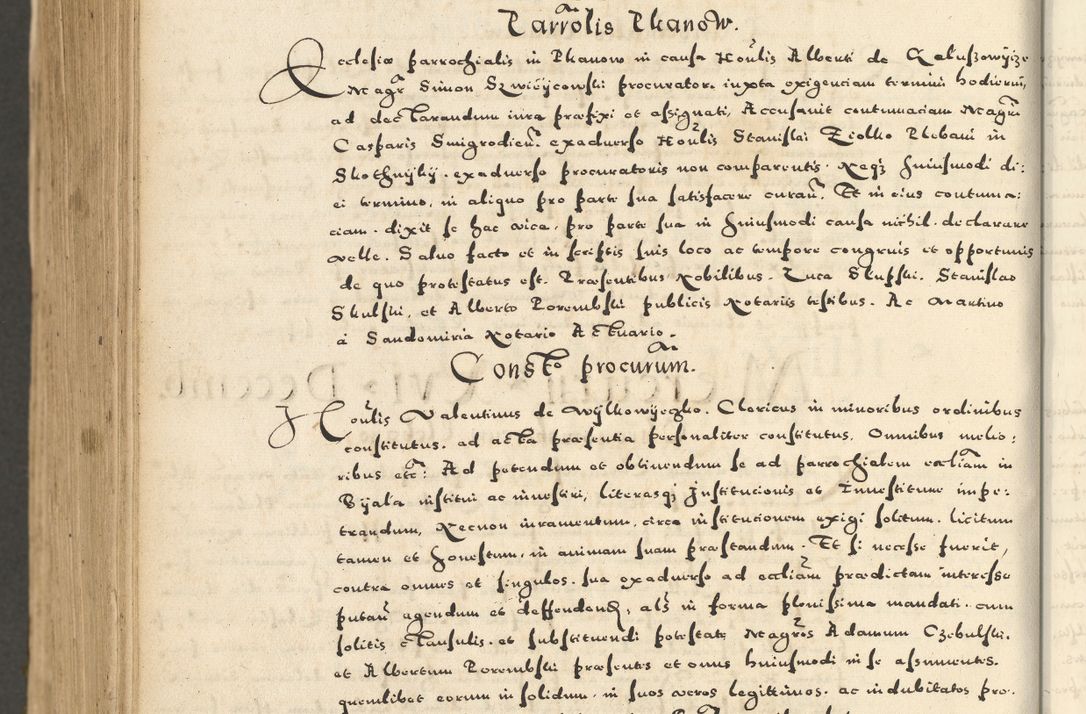 Parrolis Pkanow.
Ecclesiæ parrochialis in Pkanow in causa Noūlis Alberti de Kaluszowijcze
Magr Simon Szwieijcowski procurator. iuxta exigenciam termini hodierni,
ad declarandum iura præfixi et assignati, Accusavit contumaciam Magri
Casparis Smigrodien. exadverso Noūlis Stanislai Ziolko Plebani in
Skothnijkij. exadverso procuratoris non comparentis. Neqз huiusmodi di:
ei termino, in aliquo pro parte sua satisfacere curañ. Et in eius contuma:
ciam. dixit se hac vice, pro parte sua in huiusmodi causa nichil. declarare
velle. Salvo facto et in scriptis suis loco ac tempore congruis et opportunis
de quo protestatus est. Præsentibus Nobilibus. Luca Slupski. Stanislao
Skulski, et Alberto Porembski publicis Notariis testibus. Ac Martino
à Sandomiria Notario Actuario.
Consto procurum.
Noūlis Valentinus de Wylkowijeczko. Clericus in minoribus ordinibus
constitutus. ad acta præsentia personaliter constitutus, Omnibus melio:
ribus etc: Ad petendum et obtinendum se ad parrochialem eccliam in
Byala institui ac investiri, literasqз Institucionis et Investituræ impe:
trandum, Necnon iuramentum, circa institucionem exigi solitum. licitum
tamen et honestum, in animam suam præstandum. Et si necesse fuerit,
contra omnes et singulos. sua exadverso ad eccliam prædictam interesse
putañ agendum et deffendend, als in forma plenissima mandati. cum
solitis clausulis. et substituendi potestate Magros Adamum Czebulski.
et Albertum Porembski præsentes et onus huiusmodi in se assumentes.
quemlibet eorum in solidum. in suos veros legittimos. ac indubitatos pro: